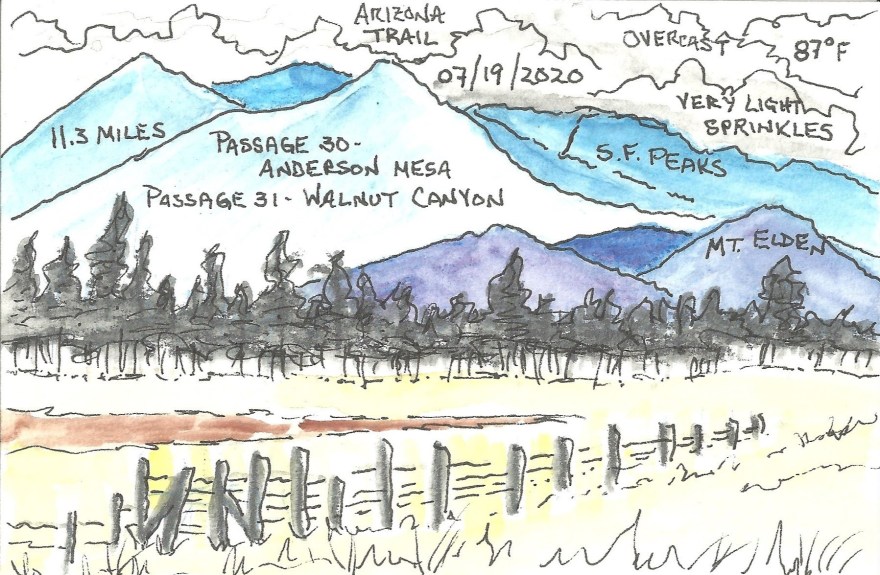 ARIZONA
TRAIL
07/19/2020
OVERCAST
87°F
VERY LIGHT
SPRINKLES
11.3 MILES
PASSAGE 30-
ANDERSON MESA
PASSAGE 31- WALNUT CANYON
S.F. PEAKS
MT. ELDEN